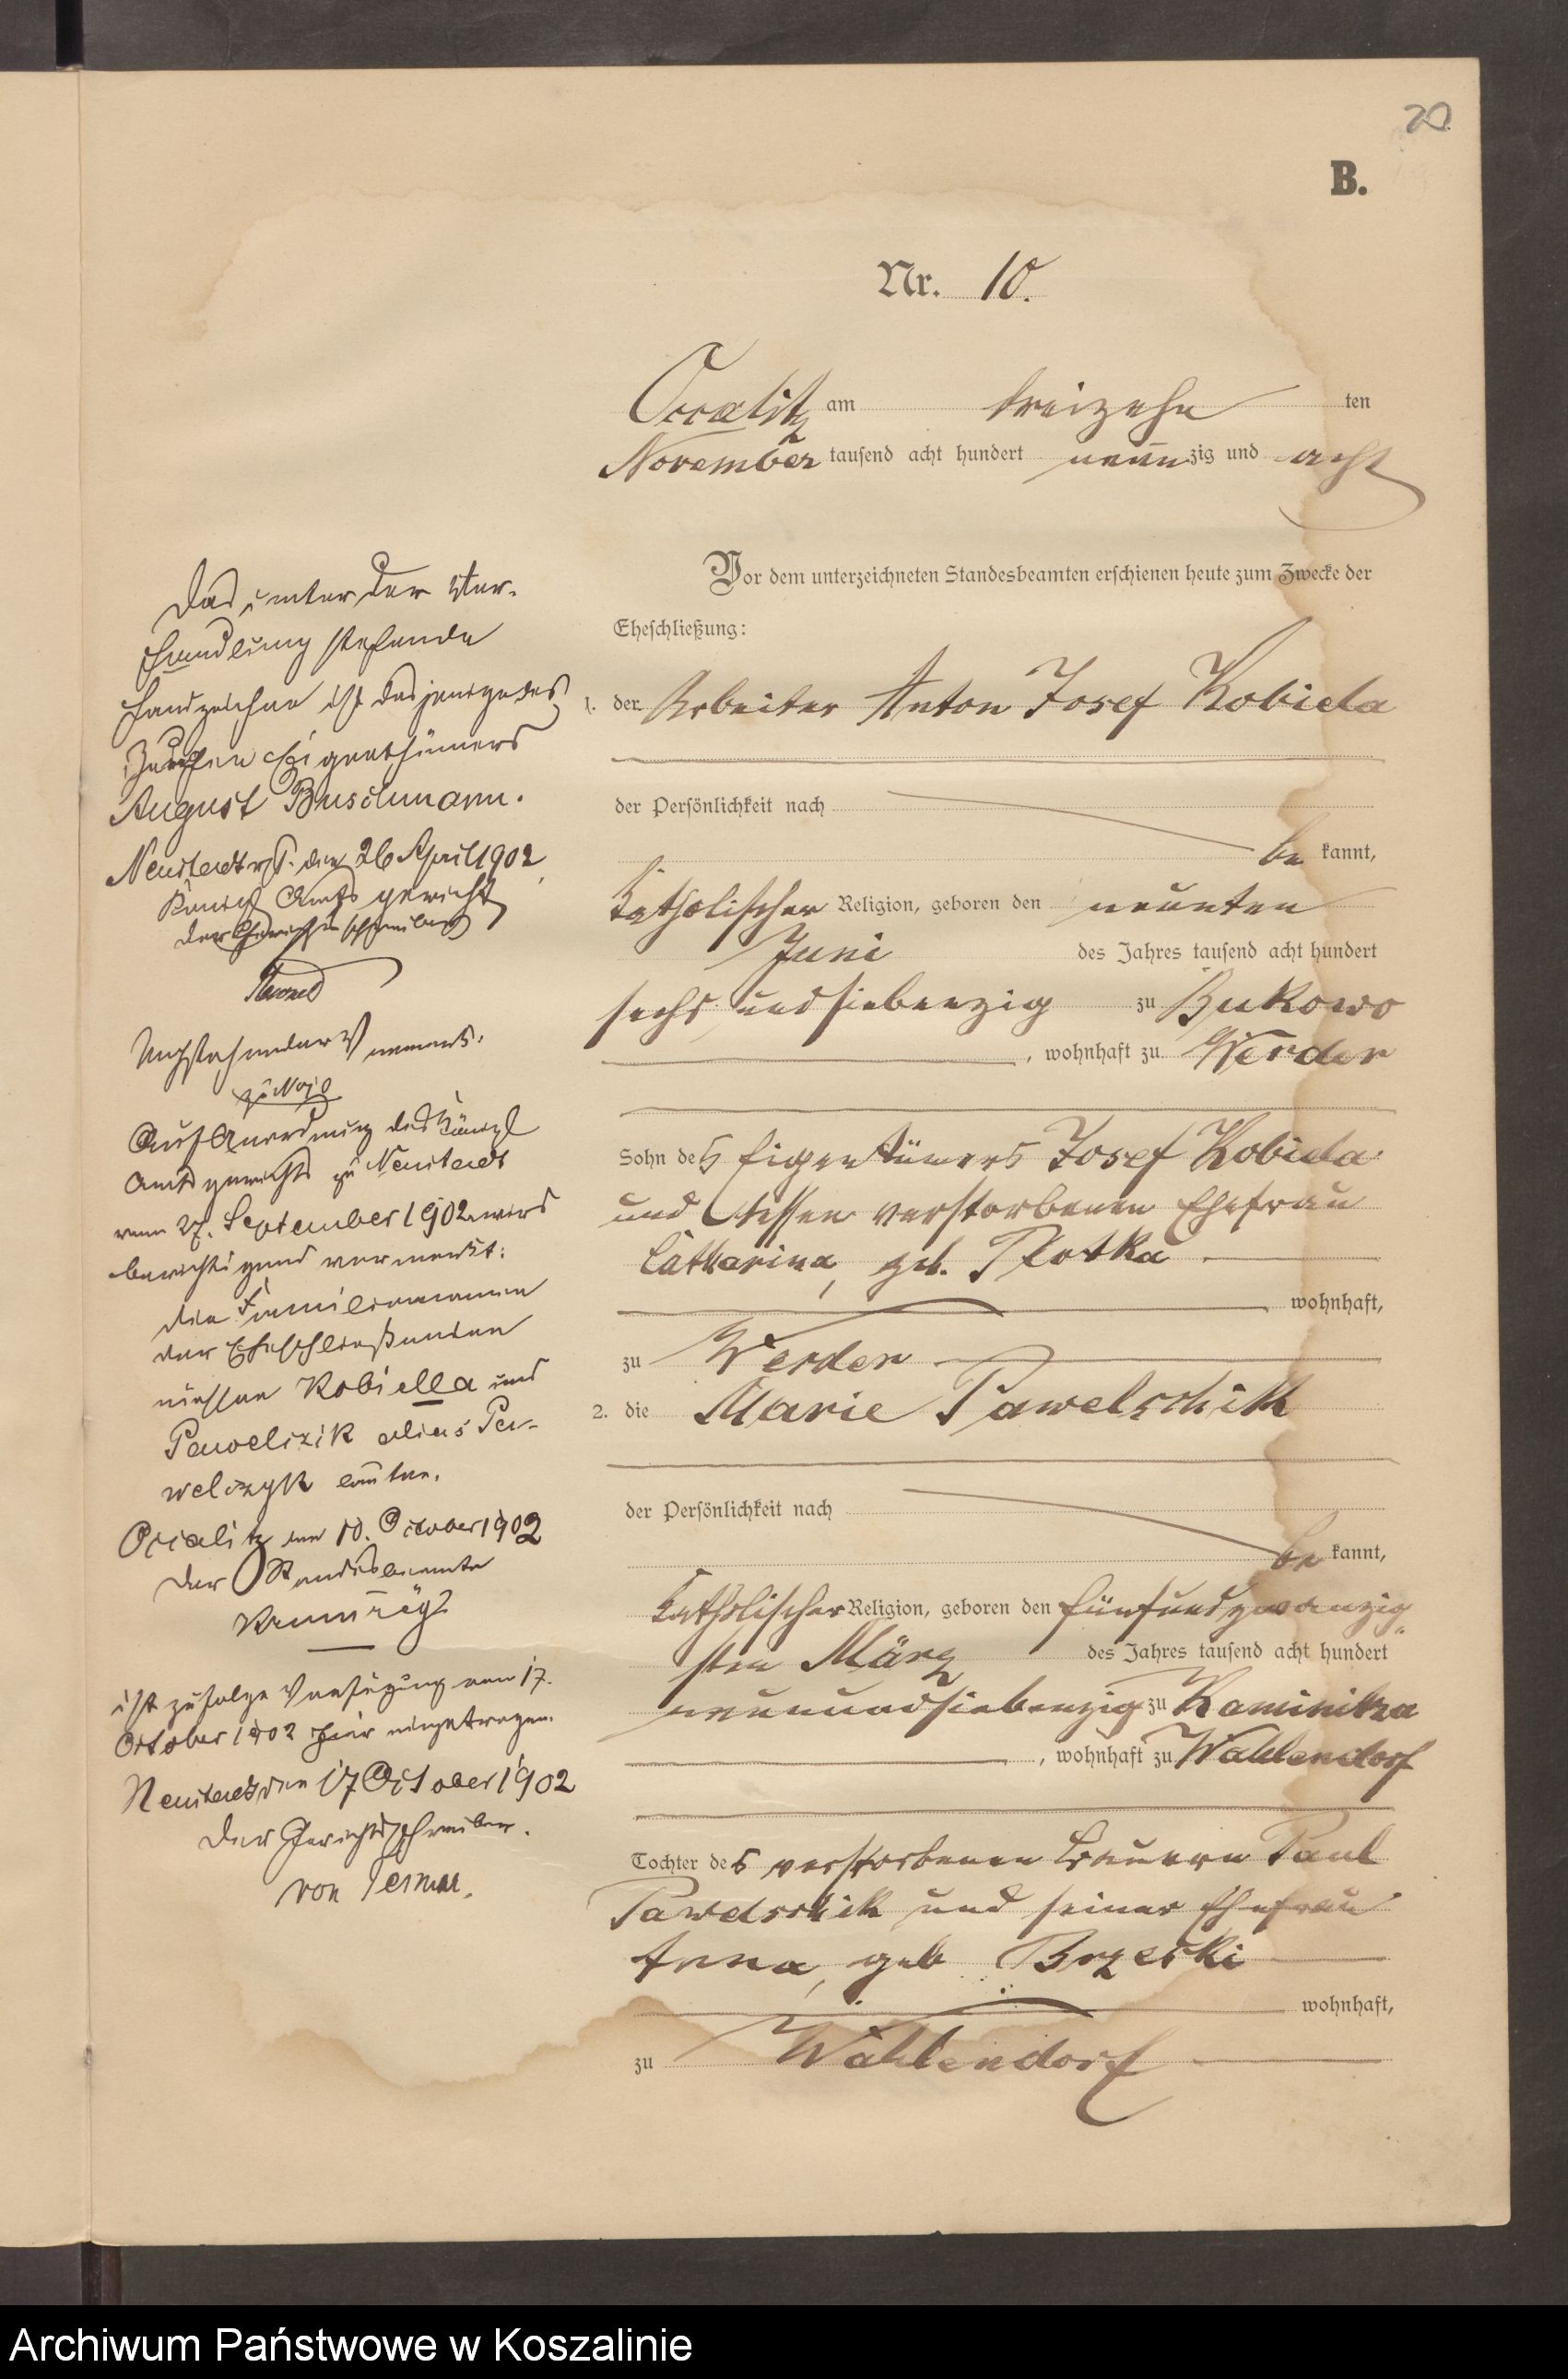 20
B.
Nr. 10.
Occalitz am dreizehn ten
November tausend acht hundert neunzig und acht
Vor dem unterzeichneten Standesbeamten erschienen heute zum Zwecke der
Eheschließung:
1. der Arbeiter Anton Josef Kobiela
der Persönlichkeit nach
be kannt,
katholischer Religion, geboren den neunten
Juni des Jahres tausend acht hundert
sechs und siebenzig zu Bukowo
, wohnhaft zu Werder
Sohn des Eigentümers Josef Kobiela
und dessen verstorbenen Ehefrau
Catharina, geb. Plotka
wohnhaft,
zu Werder
2. die Marie Pawelschik
der Persönlichkeit nach
be kannt,
katholischer Religion, geboren den fünfundzwanzig
sten März des Jahres tausend acht hundert
neunundsiebenzig zu Kaminitza
, wohnhaft zu Wahlendorf
Tochter des verstorbenen Bauern Paul
Pawelschik und seiner Ehefrau
Anna, geb. Brzeski
wohnhaft,
zu Wahlendorf
Das unter der Ver-
handlung stehende
Handzeichen ist dasjenige des
Zeugen Eigenthümers
August Buschmann.
Neustadt den 26 April 1902
Königl Amtsgericht
der Gerichtsschreiber
Nachstehender Vermerk:
Auf Anordnung des Königl
Amtsgerichts zu Neustadt
vom 27. September 1902 wird
berichtigend vermerkt:
die Familiennamen
der Eheschließenden
müssen Kobiella und
Pawelczik alias Pa-
welczyk lauten.
Occalitz den 10. October 1902
Der Standesbeamte
ist zufolge Verfügung vom 17.
October 1902 hier eingetragen.
Neustadt den 17 October 1902
Der Gerichtsschreiber.
von
Archiwum Państwowe w Koszalinie